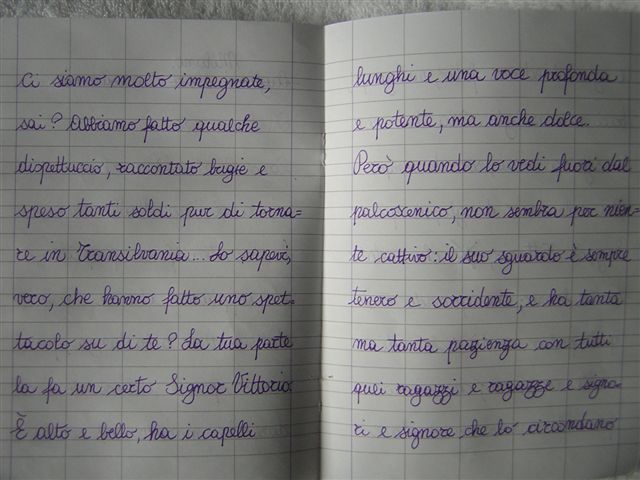 Ci siamo molto impegnate,
sai? Abbiamo fatto qualche
dispettuccio, raccontato bugie e
speso tanti soldi pur di torna=
re in Transilvania... Lo sapevi,
vero, che hanno fatto uno spet=
tacolo su di te? La tua parte
la fa un certo Signor Vittorio.
È alto e bello, ha i capelli
lunghi e una voce profonda
e potente, ma anche dolce.
Però quando lo vedi fuori dal
palcoscenico, non sembra per nien=
te cattivo: il suo sguardo è sempre
tenero e sorridente, e ha tanta
ma tanta pazienza con tutti
quei ragazzi e ragazze e signo=
ri e signore che lo circondano